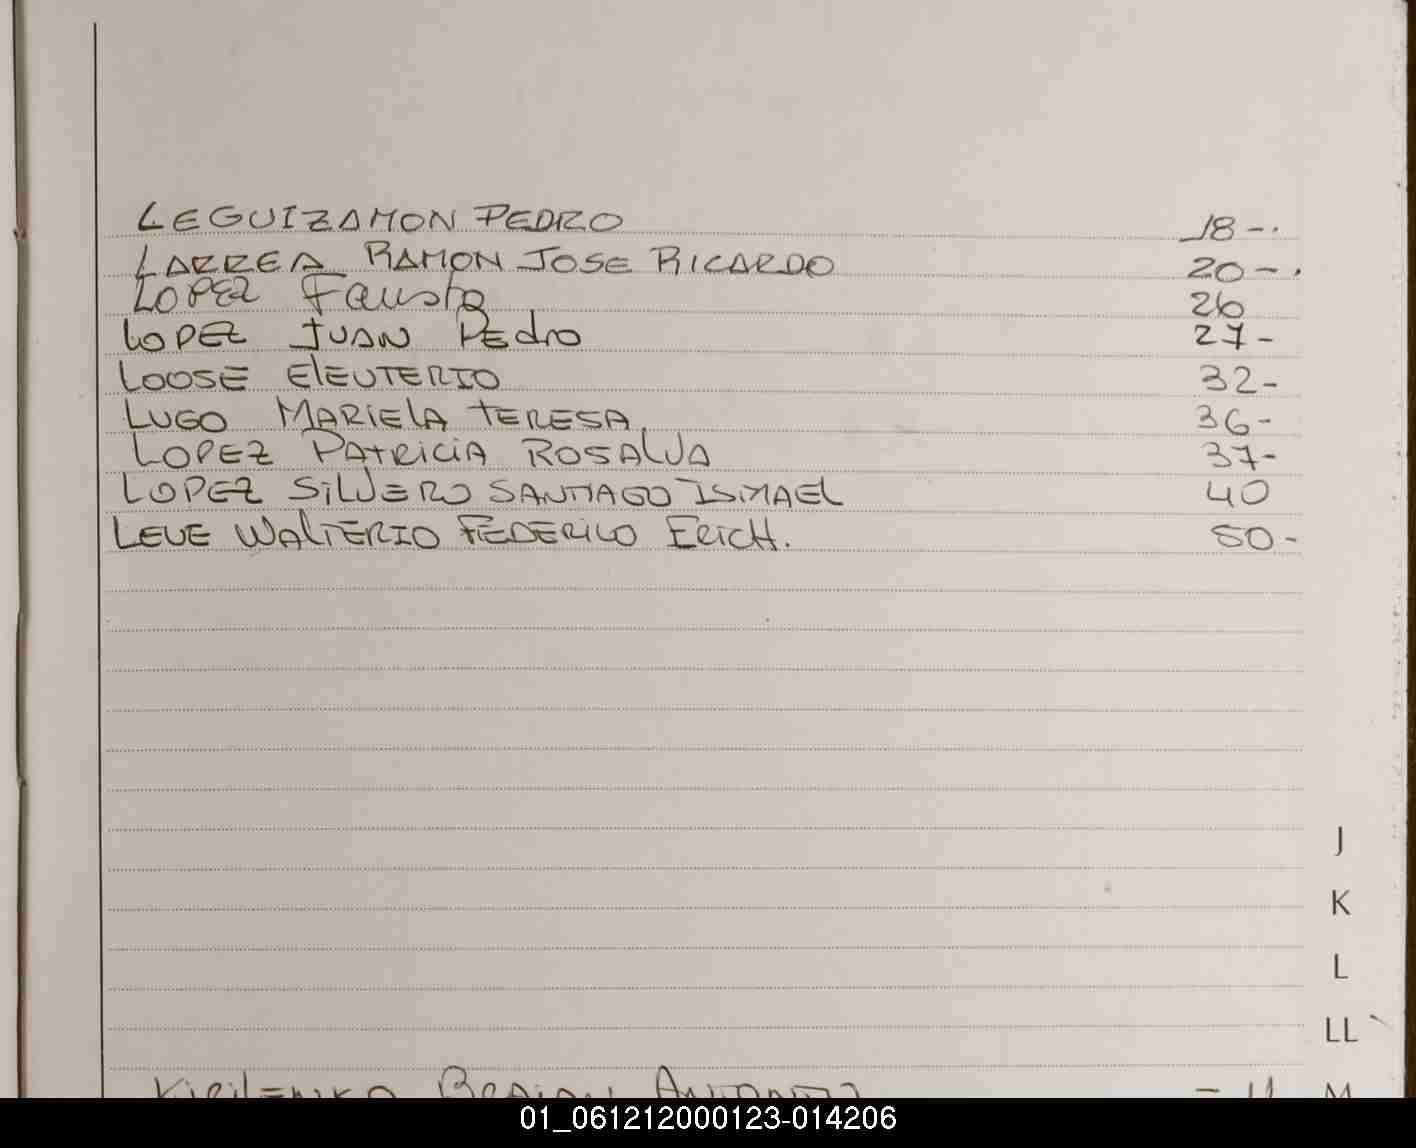 LEGUIZAMON PEDRO 18-.
LARREA RAMON JOSE RICARDO 20-.
LOPEZ Fausto 26
LOPEZ JUAN PEdro 27-
LOOSE ElEUTERIO 32-
LUGO MARIElA TERESA. 36-
LOPEZ PAtRiCiA ROSALVA 37-
LOPEZ SiLVERO SANTIAGO ISMAEL 40
LEVE WALTERIO FEDERICO ERICH. 50-
J
K
L
LL
M
01_061212000123-014206